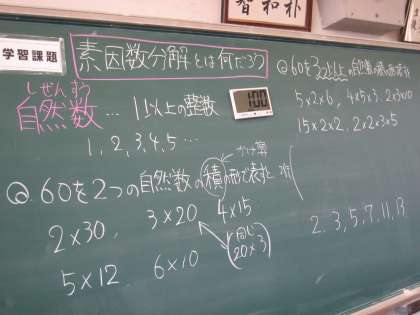 智和朴
学習課題
素因数分解とは何だろう
しぜんすう
自然数 … 1以上の整数
100
1, 2, 3, 4, 5 …
Q 60を2つの自然数の積の形で表すと
かけ算
2×30, 3×20 4×15
5×12 6×10
同じ
20×3
Q 60を3つ以上の自然数の積の形で表す
5×2×6, 4×5×3, 2×3×10
15×2×2, 2×2×3×5
2, 3, 5, 7, 11, 13